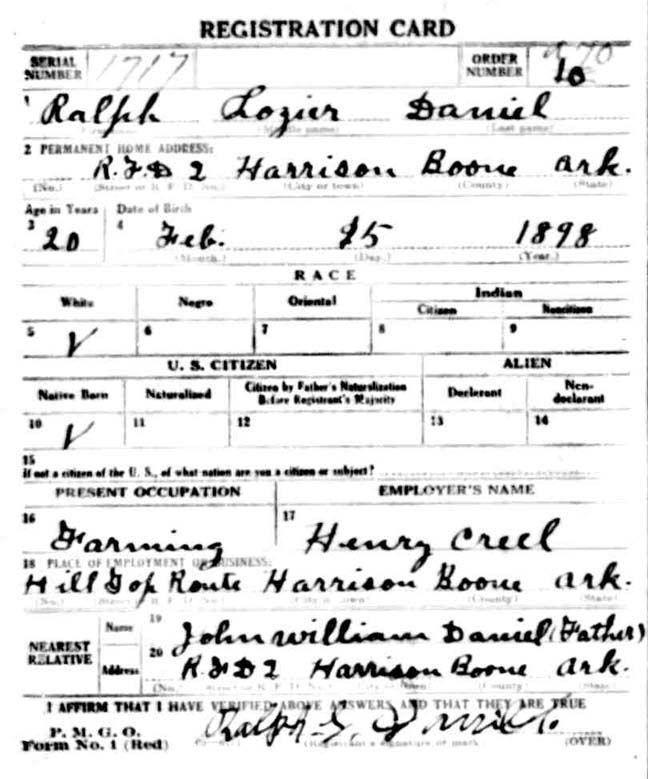 REGISTRATION CARD
SERIAL NUMBER 1717 ORDER NUMBER 10
1 Ralph Lozier Daniel
(Middle name) (Last name)
2 PERMANENT HOME ADDRESS:
R.F.D 2 Harrison Boone Ark.
(No.) (Street or R. F. D. No.) (City or town) (County) (State)
Age in Years Date of Birth
3 20 4 Feb. 25 1898
(Month.) (Day.) (Year.)
RACE
White Negro Oriental Indian
Citizen Noncitizen
5 V 6 7 8 9
U. S. CITIZEN ALIEN
Native Born Naturalized Citizen by Father's Naturalization Before Registrant's Majority Declarant Non-declarant
10 V 11 12 13 14
15
If not a citizen of the U. S., of what nation are you a citizen or subject?
PRESENT OCCUPATION EMPLOYER'S NAME
16 Farming 17 Henry Creel
18 PLACE OF EMPLOYMENT OR BUSINESS:
Hill Top Route Harrison Boone Ark.
(No.) (City or town) (County) (State)
NEAREST RELATIVE Name 19 John William Daniel (Father)
Address 20 R.F.D 2 Harrison Boone Ark.
(No.) (City or town) (County) (State)
I AFFIRM THAT I HAVE VERIFIED ABOVE ANSWERS AND THAT THEY ARE TRUE
P. M. G. O.
Form No. 1 (Red) Ralph L. Daniel (Registrant's signature or mark) (OVER)